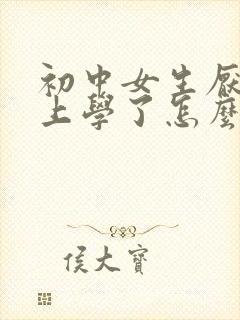 初中女生厭
上學了怎麼
侯大寶